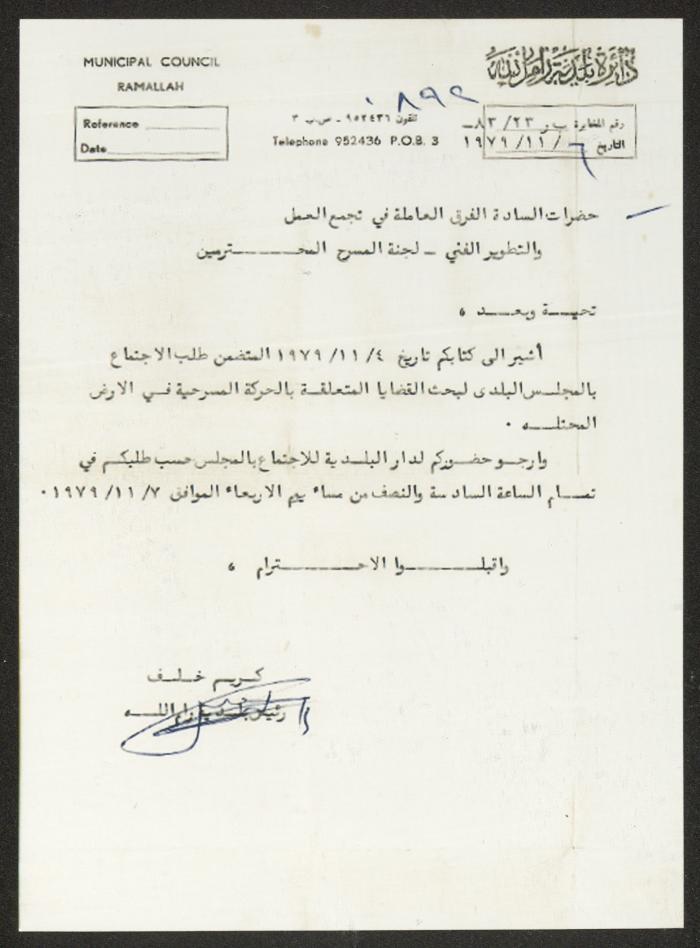 MUNICIPAL COUNCIL
RAMALLAH
دائرة بلدية رام الله
Reference
Date
٨٩٢
تلفون ٩٥٢٤٣٦ - ص.ب ٣
Telephone 952436 P.O.B. 3
رقم المخابرة ب ر ٢٣/ ٨٣ــ
التاريخ ٦ /١١/ ١٩٧٩
حضرات السادة الفرق العاملة في تجمع العمل
والتطوير الفني ــ لجنة المسرح المحـــــــترمين
تحيـــة وبعـــد ،
أشير الى كتابكم تاريخ ٤/ ١١/ ١٩٧٩ المتضمن طلب الاجتماع
بالمجلس البلدى لبحث القضايا المتعلقة بالحركة المسرحية فــي الارض
المحتلــه .
وارجــو حضوركم لدار البلدية للاجتماع بالمجلس حسب طلبكم في
تمـــام الساعة السادسة والنصف من مساء يوم الاربعاء الموافق ٧/ ١١/ ١٩٧٩ .
واقبلـــــــوا الاحـــــــترام ،
كـريـم خـلـف
رئيس بلـدية رام اللــه